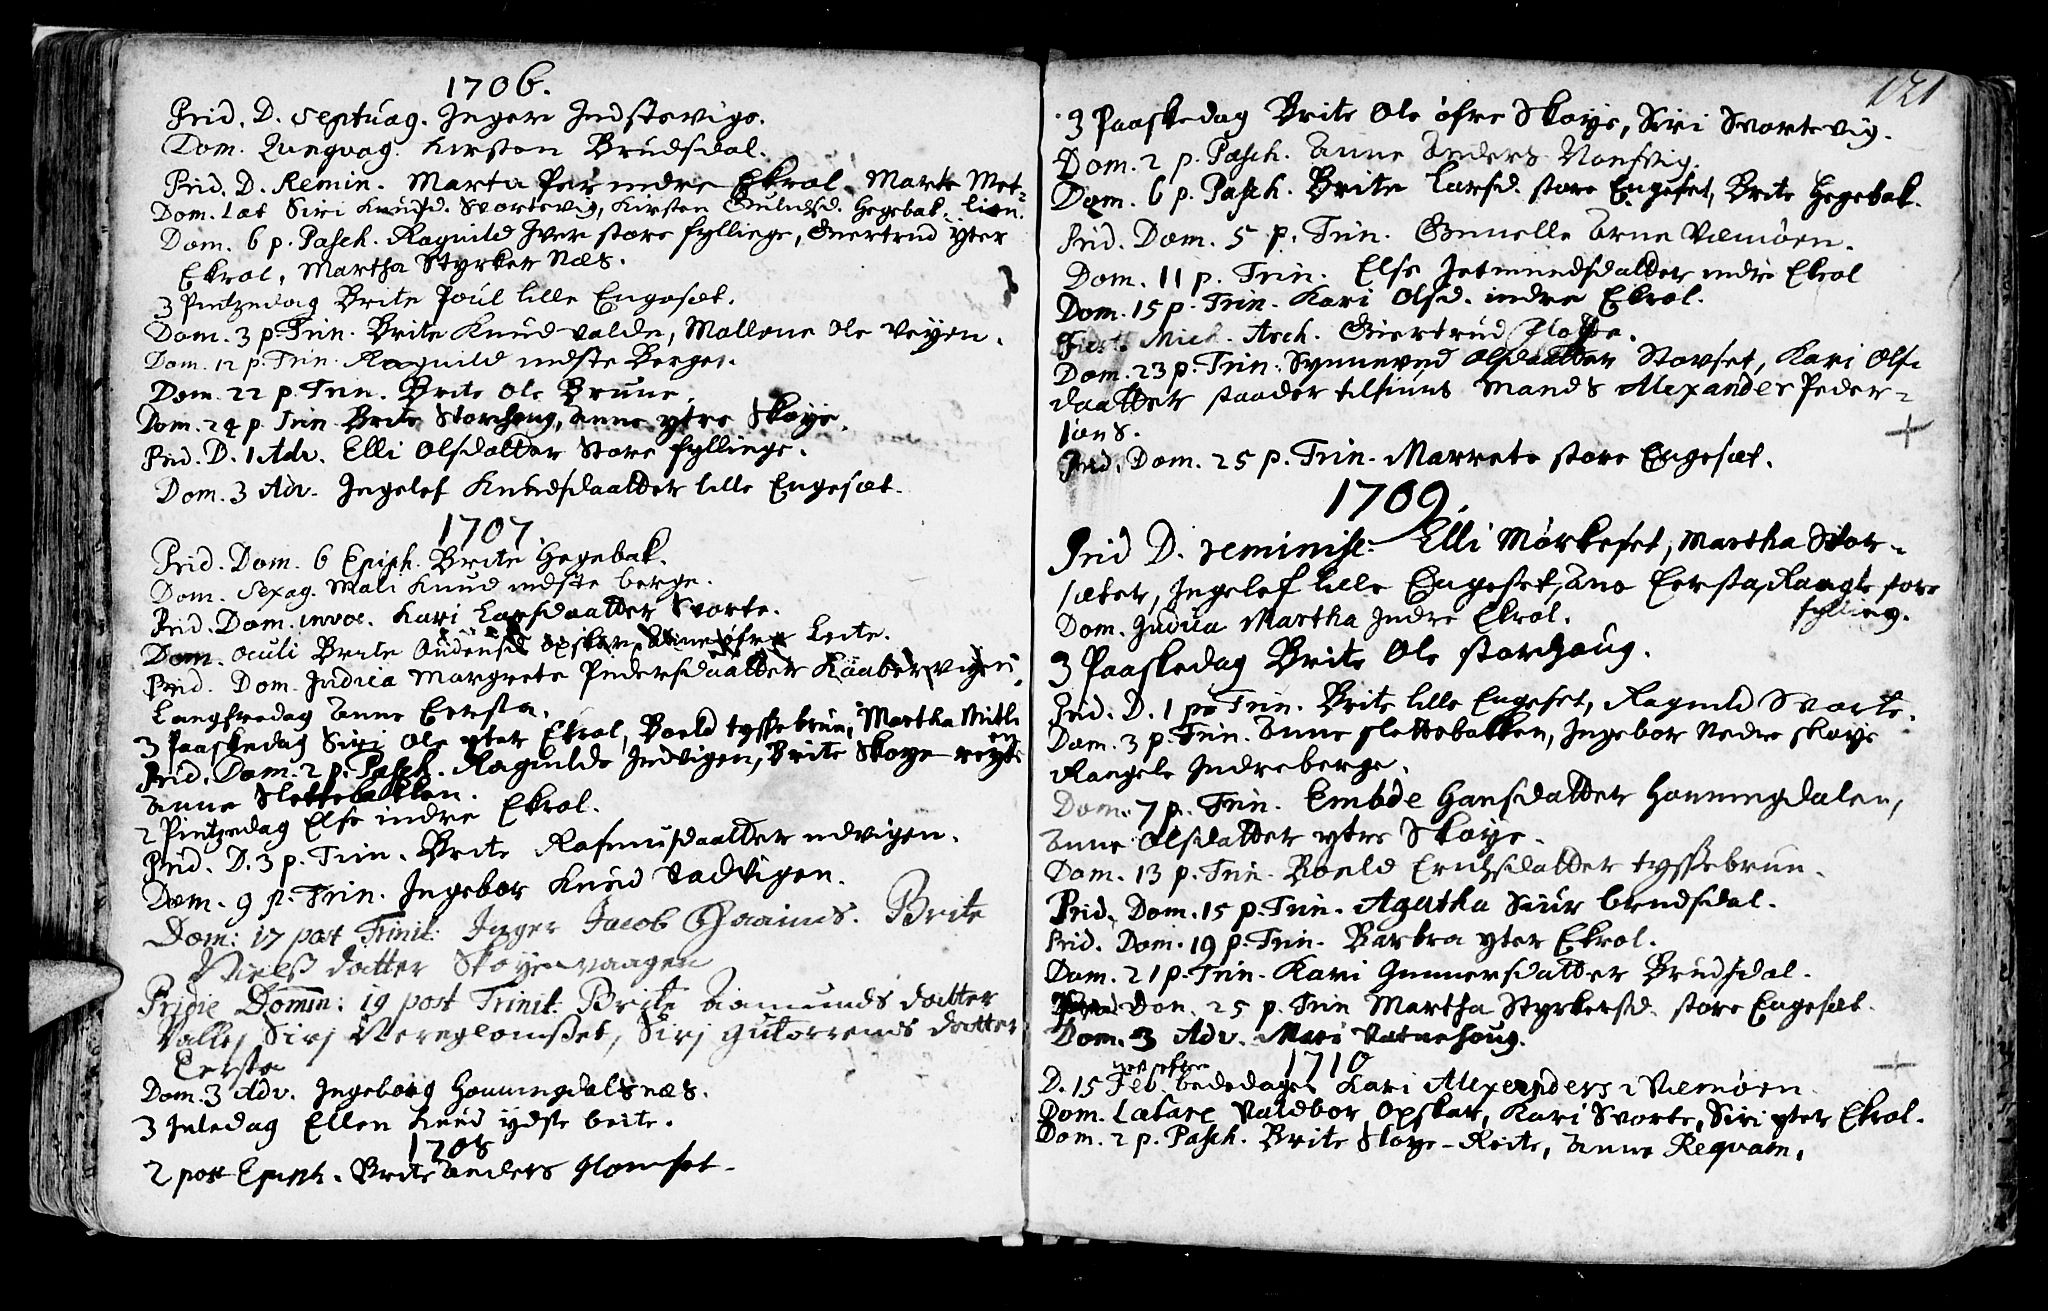 1706.
Prid. D. Septuag. Inger Indstevigs.
Dom. Qvinqvag. Kirsten Brudsdal.
Prid. D. Remin. Marta Per indre Ekrol. Marte Met-
Dom. Læt Siri Knudsd. Svortevig, Kirsten Gulichsd. Hegebak. lien.
Dom. 6 p. Pasch. Ragnild Iver store fyllinge, Giertrud yter
Ekrol, Martha Styrker Næs.
3 Pintzedag Brite Poul lille Engeset.
Dom. 3 p. Trin. Brite Knud valde, Mallene Ole Veyen.
Dom. 12 p. Trin. Ragnild indste Berger.
Dom. 22 p. Trin. Brite Ole Brune.
Dom. 24 p. Trin. Brite Storhoug, Anne ytre Skoye.
Prid. D. 1 Adv. Elli Olsdatter Store fyllinge.
Dom. 3 Adv. Ingelef Knudsdaatter lille Engesæt.
1707
Prid. Dom. 6 Epiph. Brite Hegebak.
Dom. Sexag. Mali Knud indste berge.
Prid. Dom. invoc. Kari Larsdaatter Svorte.
Dom. Oculi Brite Audensd. Opskar, Anne øfre Leite.
Prid. Dom. Judica Margrete Pedersdaatter Kaabervigen.
Langfredag Anne Eersta.
3 Paaskedag Siri Ole yter Ekrol, Boeld tyssebrun, Martha Mitli
Prid. Dom. 2 p. Pasch. Ragnilde Indvigen, Brite Skoye reyte
Anne Slettebakken.
2 Pintzedag Else indre Ekrol.
Prid. D. 3 p. Trin. Brite Rasmusdaatter udvigen.
Dom. 9 p. Trin. Ingebor Knud Vadvigen.
Dom: 17 post Trinit: Inger Jacob Brite
Nielß datter Skoyenvaagen
Pridie Domin: 19 post Trinit: Brite Aamunds datter
Valle, Sirj Nereglomßet, Sirj Gutorrems datter
Eersta
Dom. 3 Adv. Ingeborg Honningdalsnæs.
3 Juledag Ellen Knud ydste beite.
1708
2 post Epiph. Brite Anders Glomset.
121
3 Paaskedag Brite Ole øfre Skoye, Siri Svortevig.
Dom. 2 p. Pasch. Anne Anders
Dom. 6 p. Pasch. Brite Larsd. store Engeset, Brite Hegebak.
Prid. Dom. 5 p. Trin. Gunelle Arne Væmøen.
Dom. 11 p. Trin. Else Jetmundsdatter indre Ekrol
Dom. 15 p. Trin. Kari Olsd. indre Ekrol.
Fest. Mich. Arch. Giertrud
Dom. 23 p. Trin. Synneved Olsdaatter Stovset, Kari Ols
daatter Mands Alexander Peder-
sons.
Prid. Dom. 25 p. Trin. Marrete store Engesæt.
1709.
Prid D. reminisc: Elli Mørkeset, Martha Stor-
sæter, Ingelef lille Engeset, Ane Eersta, Rangle store
fylling.
Dom. Judica Martha Indre Ekrol.
3 Paaskedag Brite Ole storhoug.
Prid. D. 1 p. Trin. Brite lille Engeset, Ragnild Svorte.
Dom. 3 p. Trin. Anne slettebakken, Ingebor Nedre skoye
Rangele Indreberge.
Dom. 7 p. Trin. Embde Hansdatter Honningdalen,
Anne Olsdatter ytre Skoye.
Dom. 13 p. Trin. Boeld Erichsdatter tyssebrun.
Prid. Dom. 15 p. Trin. Agatha Siur brudsdal.
Prid. Dom. 19 p. Trin. Barbra yter Ekrol.
Dom. 21 p. Trin. Kari Gunnersdatter Brudsdal.
Dom. 25 p. Trin Martha Styrkersd. store Engesæt.
Dom. 3 Adv. Mari Vatnehoug.
1710
D. 15 Feb. bededager Kari Alexanders Væmøen
Dom. Lætare Valdbor Opskar, Kari Svorte, Siri yter Ekrol.
Dom. 2 p. Pasch. Brite Skoye-Reite, Anne Reqvam.